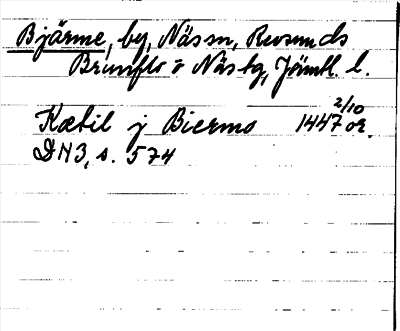 Bjärme, by, Näs sn, Revsunds
Brunflo o Näs tg, Jämtl. l.
2/10
Kætil j Biermo 1447 or.
DN3, s. 574